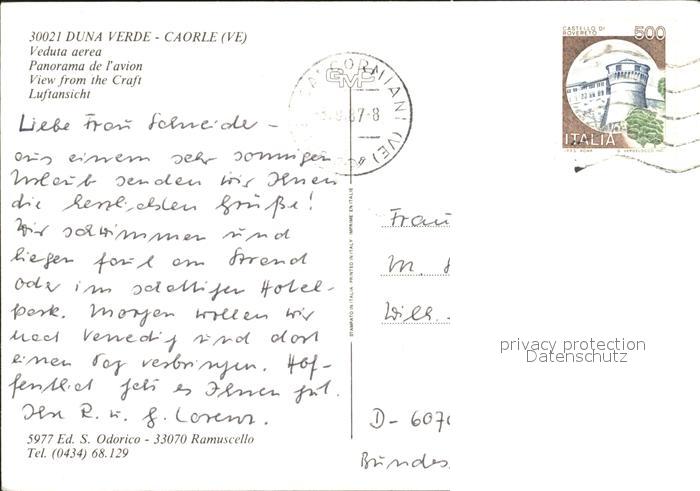 30021 DUNA VERDE - CAORLE (VE)
Veduta aerea
Panorama de l'avion
View from the Craft
Luftansicht
Liebe Frau Schneider -
aus einem sehr sonnigen
Urlaub senden wir Ihnen
die herzlichsten Grüße!
Wir schwimmen und
liegen faul am Strand
oder im schattigen Hotel-
park. Morgen wollen wir
nach Venedig und dort
einen Tag verbringen. Hof-
fentlich geht es Ihnen gut.
Ihre R. u. G. Lorenz.
5977 Ed. S. Odorico - 33070 Ramuscello
Tel. (0434) 68.129
STAMPATO IN ITALY PRINTED IN ITALY IMPRIME EN ITALIE
GMP
87-8
(VE)
CASTELLO DI
ROVERETO
500
ITALIA
Frau
M.
Wilh.
privacy protection
Datenschutz
D-607
Bundes